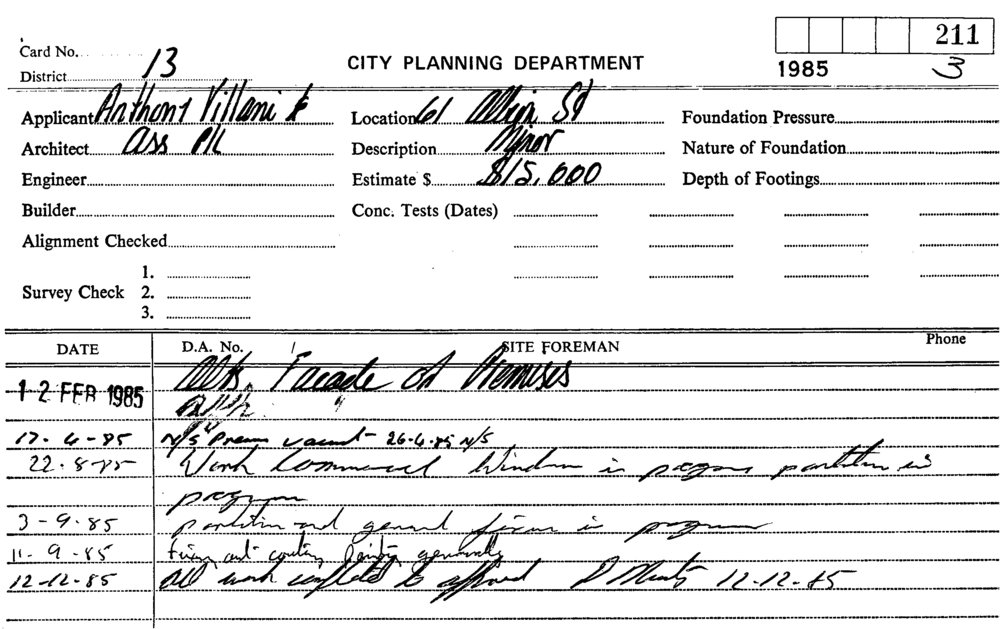 211
Card No.
District 13
CITY PLANNING DEPARTMENT
1985 3
Applicant Anthony Villani &
Location 61 St
Foundation Pressure
Architect Ass P/L
Description Minor
Nature of Foundation
Engineer
Estimate $ $15,000
Depth of Footings
Builder
Conc. Tests (Dates)
Alignment Checked
Survey Check
1.
2.
3.
DATE D.A. No. SITE FOREMAN Phone
12 FEB 1985 Alts, Facade of Premises
"
17-4-85 N/S Prem vacant - 26-4-85 N/S
22-8-85 Work Commenced Window in progress partition in
progress
3-9-85 partition and general fixing in progress
11-9-85 Fixing out generally
12-12-85 All work completed to approval 12-12-85